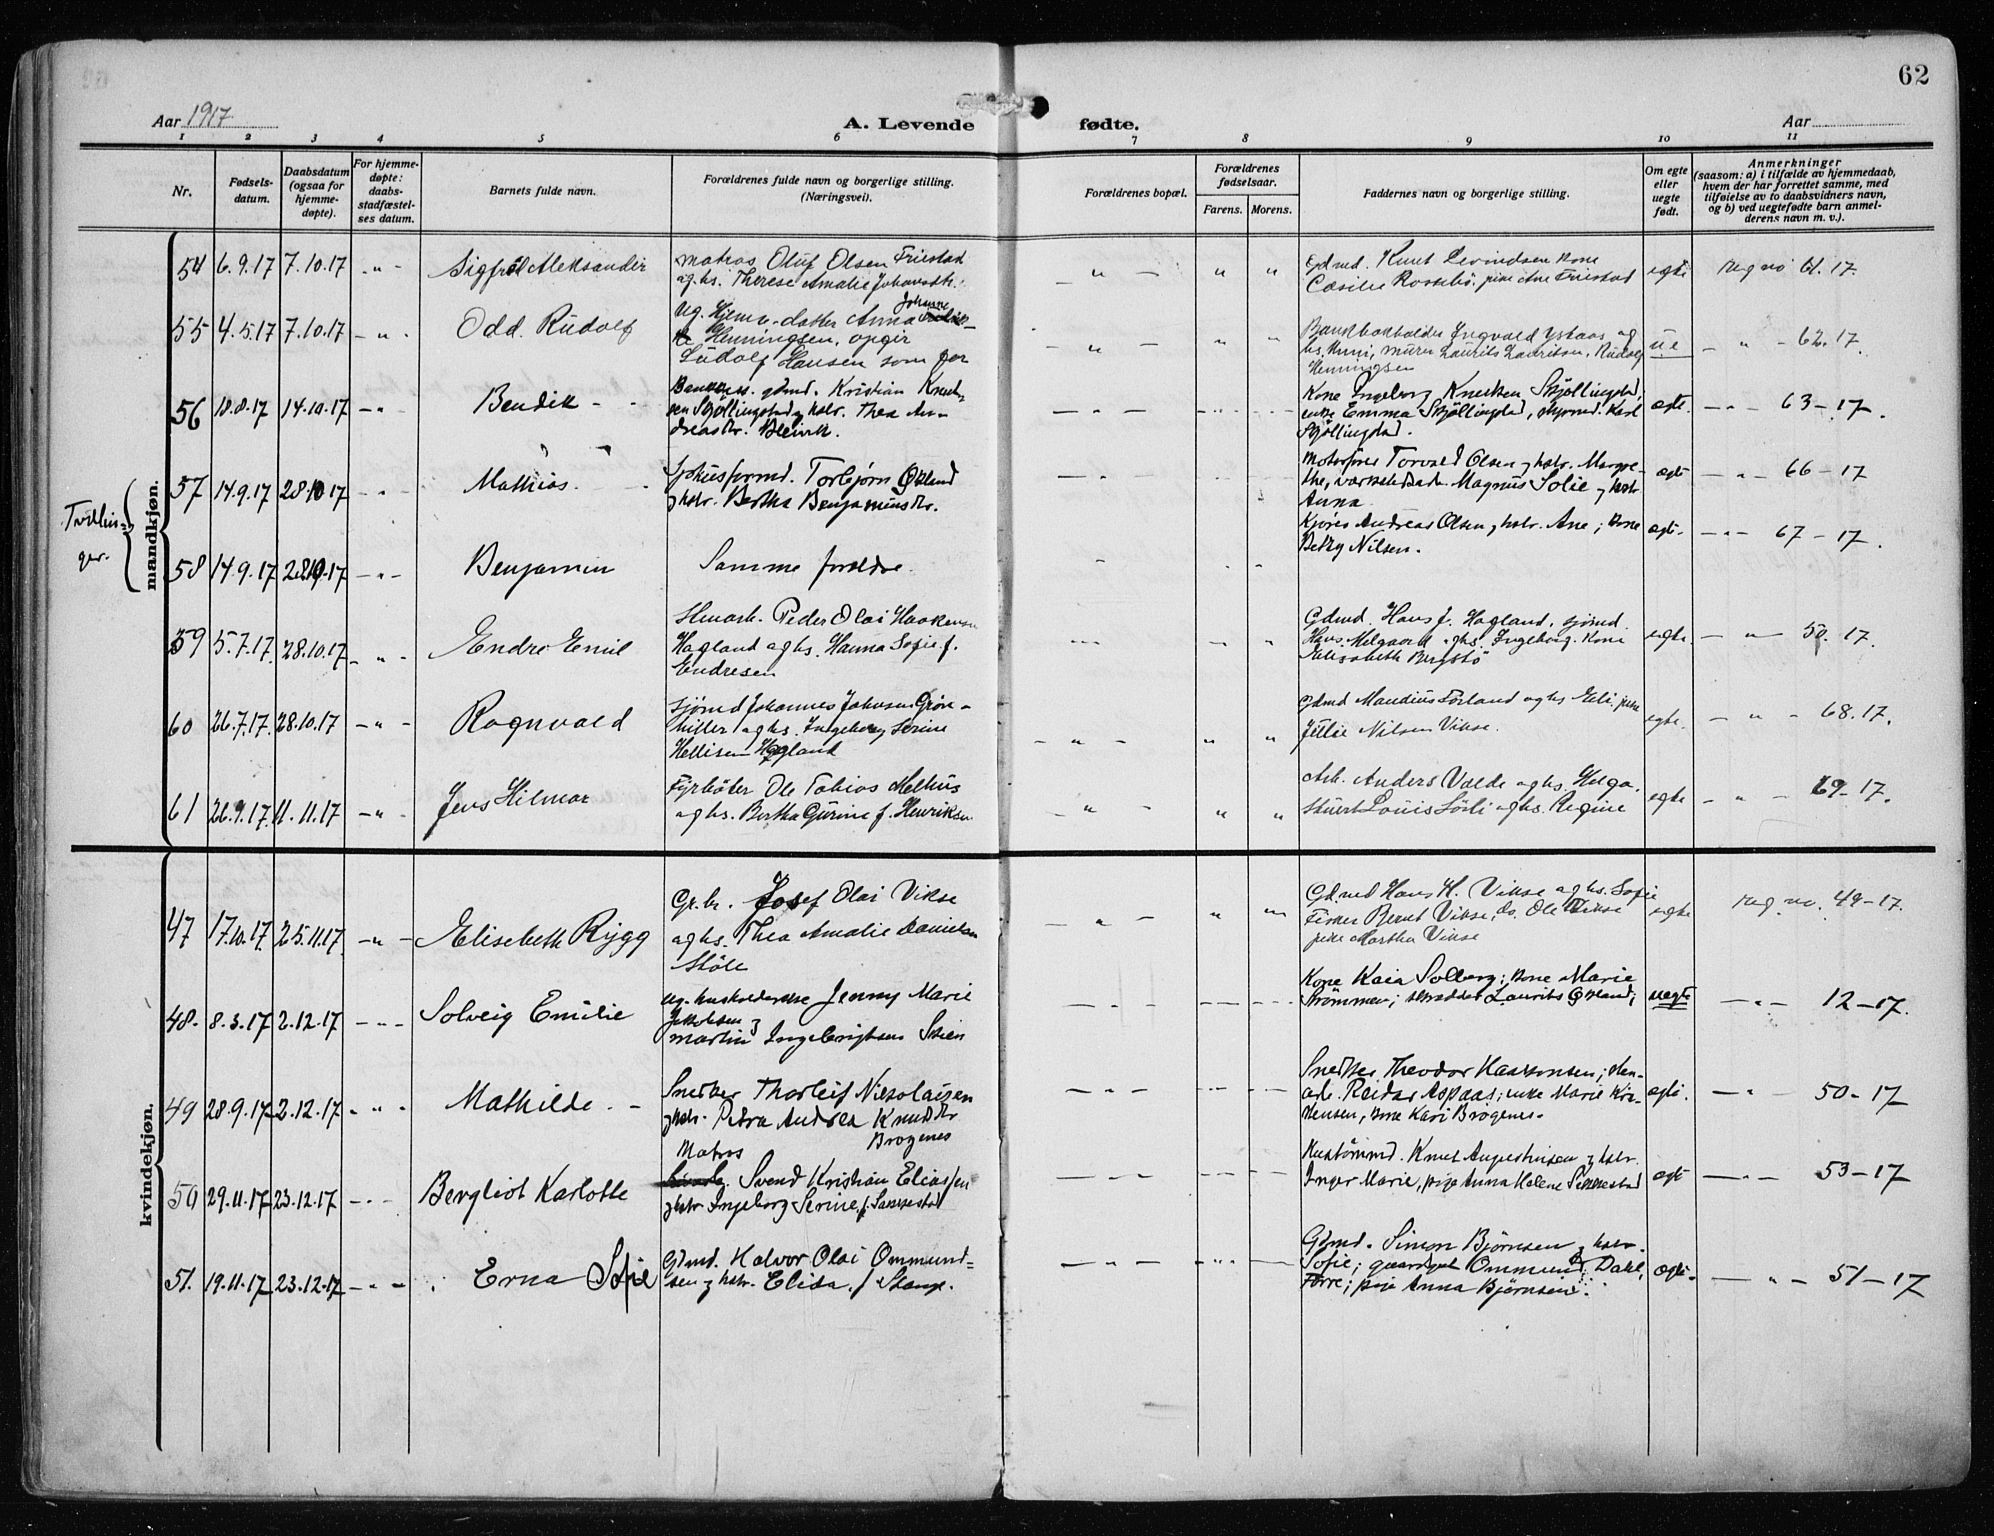 62
Aar 1917
A. Levende fødte.
Aar
1 2 3 4 5 6 7 8 9 10 11
Nr.
Fødsels-
datum.
Daabsdatum
(ogsaa for
hjemme-
døpte).
For hjemme-
døpte:
daabs-
stadfæstel-
ses datum.
Barnets fulde navn.
Forældrenes fulde navn og borgerlige stilling.
(Næringsvei).
Forældrenes bopæl.
Forældrenes
fødselsaar.
Farens. Morens.
Faddernes navn og borgerlige stilling.
Om egte
eller
uegte
født.
Anmerkninger
(saasom: a) i tilfælde av hjemmedaab,
hvem der har forrettet samme, med
tilføielse av to daabsvidners navn,
og b) ved uegtefødte barn anmel-
derens navn m. v.).
mandkjøn.
54 6.9.17 7.10.17 -"- Sigfrid Aleksander
Matros Oluf Olsen Friestad
og hs. Therese Amalie
Gdmd. Knut Levindsen kone
Cæsilie Rossebö. pike Ane Friestad
egte
Reg no 61.17.
55 4.5.17 7.10.17 -"- Odd. Rudolf
Ug. Hjemv. datter Anna Johanne
Henningsen, opgir
Ludolf Hansen som far
Bankbokholder Ingvald Ystaas og
hs. murer Laurits Lauritsen, Rudolf
Henningsen
u e
- " - 62.17.
56 18.8.17 14.10.17 -"- Bendik -
gdmd. Kristian Knut-
sen Skjöllingstad og hstr. Thea An-
dreasdtr. Bleivik.
Kone Ingeborg Knutsen Skjöllingstad,
enke Emma Skjöllingstad, Karl
Skjöllingstad.
egte.
- " - 63-17.
Tvillin-
ger.
57 14.9.17 28.10.17 -"- Mathias.
Torbjørn Økland
og hstr. Bertha Benjaminsdtr.
Motorfører Torvald Olsen og hstr. Margre-
the, Magnus Solie og hstr
Anna
egte
- " - 66-17
58 14.9.17 28.10.17 -"- Benjamin
Samme forældre.
Kjører Andreas Olsen og hstr. Ane; Kone
Betzy Nilsen.
egte.
- " - 67-17.
59 5.7.17. 28.10.17 -"- Endre Emil
Peder Olai Haakonsen
Hagland og hs. Hanna Sofie f.
Endresen
Gdmd. Hans J. Hagland, sjømd.
Hans Helgaard og hs. Ingeborg. Kone
Elisabeth Bergstö
egte.
- " - 50.17.
60 26.7.17. 28.10.17 -"- Ragnvald
Sjömd Johannes Johnsen Grön-
hiller og hs. Ingeborg Serine
Hellisen Hagland
Gdmd Mandius Förland og hs Eli, pike
Jillie Nilsen Vikse.
egte.
- " - 68.17.
61 26.9.17. 11.11.17 -"- Jens Hilmar
Fyrböter Ole Tobias Melhus
og hs. Bertha Gurine f. Henriksen
Arb. Anders Valde og hs. Helga,
Stuert Louis Sörli og hs. Regine
egte
- " - 69-17.
kvindekjøn.
47 17.10.17. 25.11.17 -"- Elisebeth Rygg
Gr.br. Josef Olai Vikse
og hs. Thea Amalie Danielsen
Støle
Gdmd Hans H. Vikse og hs. Sofie
Fisker Bernt Vikse, do. Ole Vikse
pike Martha Vikse
egte
Reg no. 49-17.
48. 8.3.17 2.12.17 -"- Solveig Emilie
ug. husholderske Jenny Marie
Jakobsen og
Martin Ingebrigtsen Skien
Kone Kaia Solberg; kone Marie
Strömmen; skrædder Laurits Økland;
uegte
- " - 12-17.
49 28.9.17 2.12.17 -"- Mathilde. -
Snekker Thorleif Nikolaisen
og hstr. Petra Andrea Knudsdtr
Brogenes
Snekker Theodor Haakonsen;
arb. Reidar Aspaas; enke Marie Kri-
stensen, kone Kari Brogenes.
egte.
- " - 50-17
50 29.11.17 23.12.17 -"- Bergliot Karlotte
Matros
Svend Kristian Eliassen
og hstr Ingeborg Serine, f. Sakkestad
Knut Augustinsen og hstr.
Inger Marie, pige Anna Helene Sakkestad
egte
- " - 53-17
51. 19.11.17 23.12.17 -"- Erna Sofie
Gdmd. Halvor Olai Ommund-
sen og hstr. Elida, f. Stange.
Gdmd. Simon Bjørnsen og hstr.
Sofie; gaardgut Ommund Dahl,
Førre; pige Anna Bjørnsen.
egte.
- " - 51-17